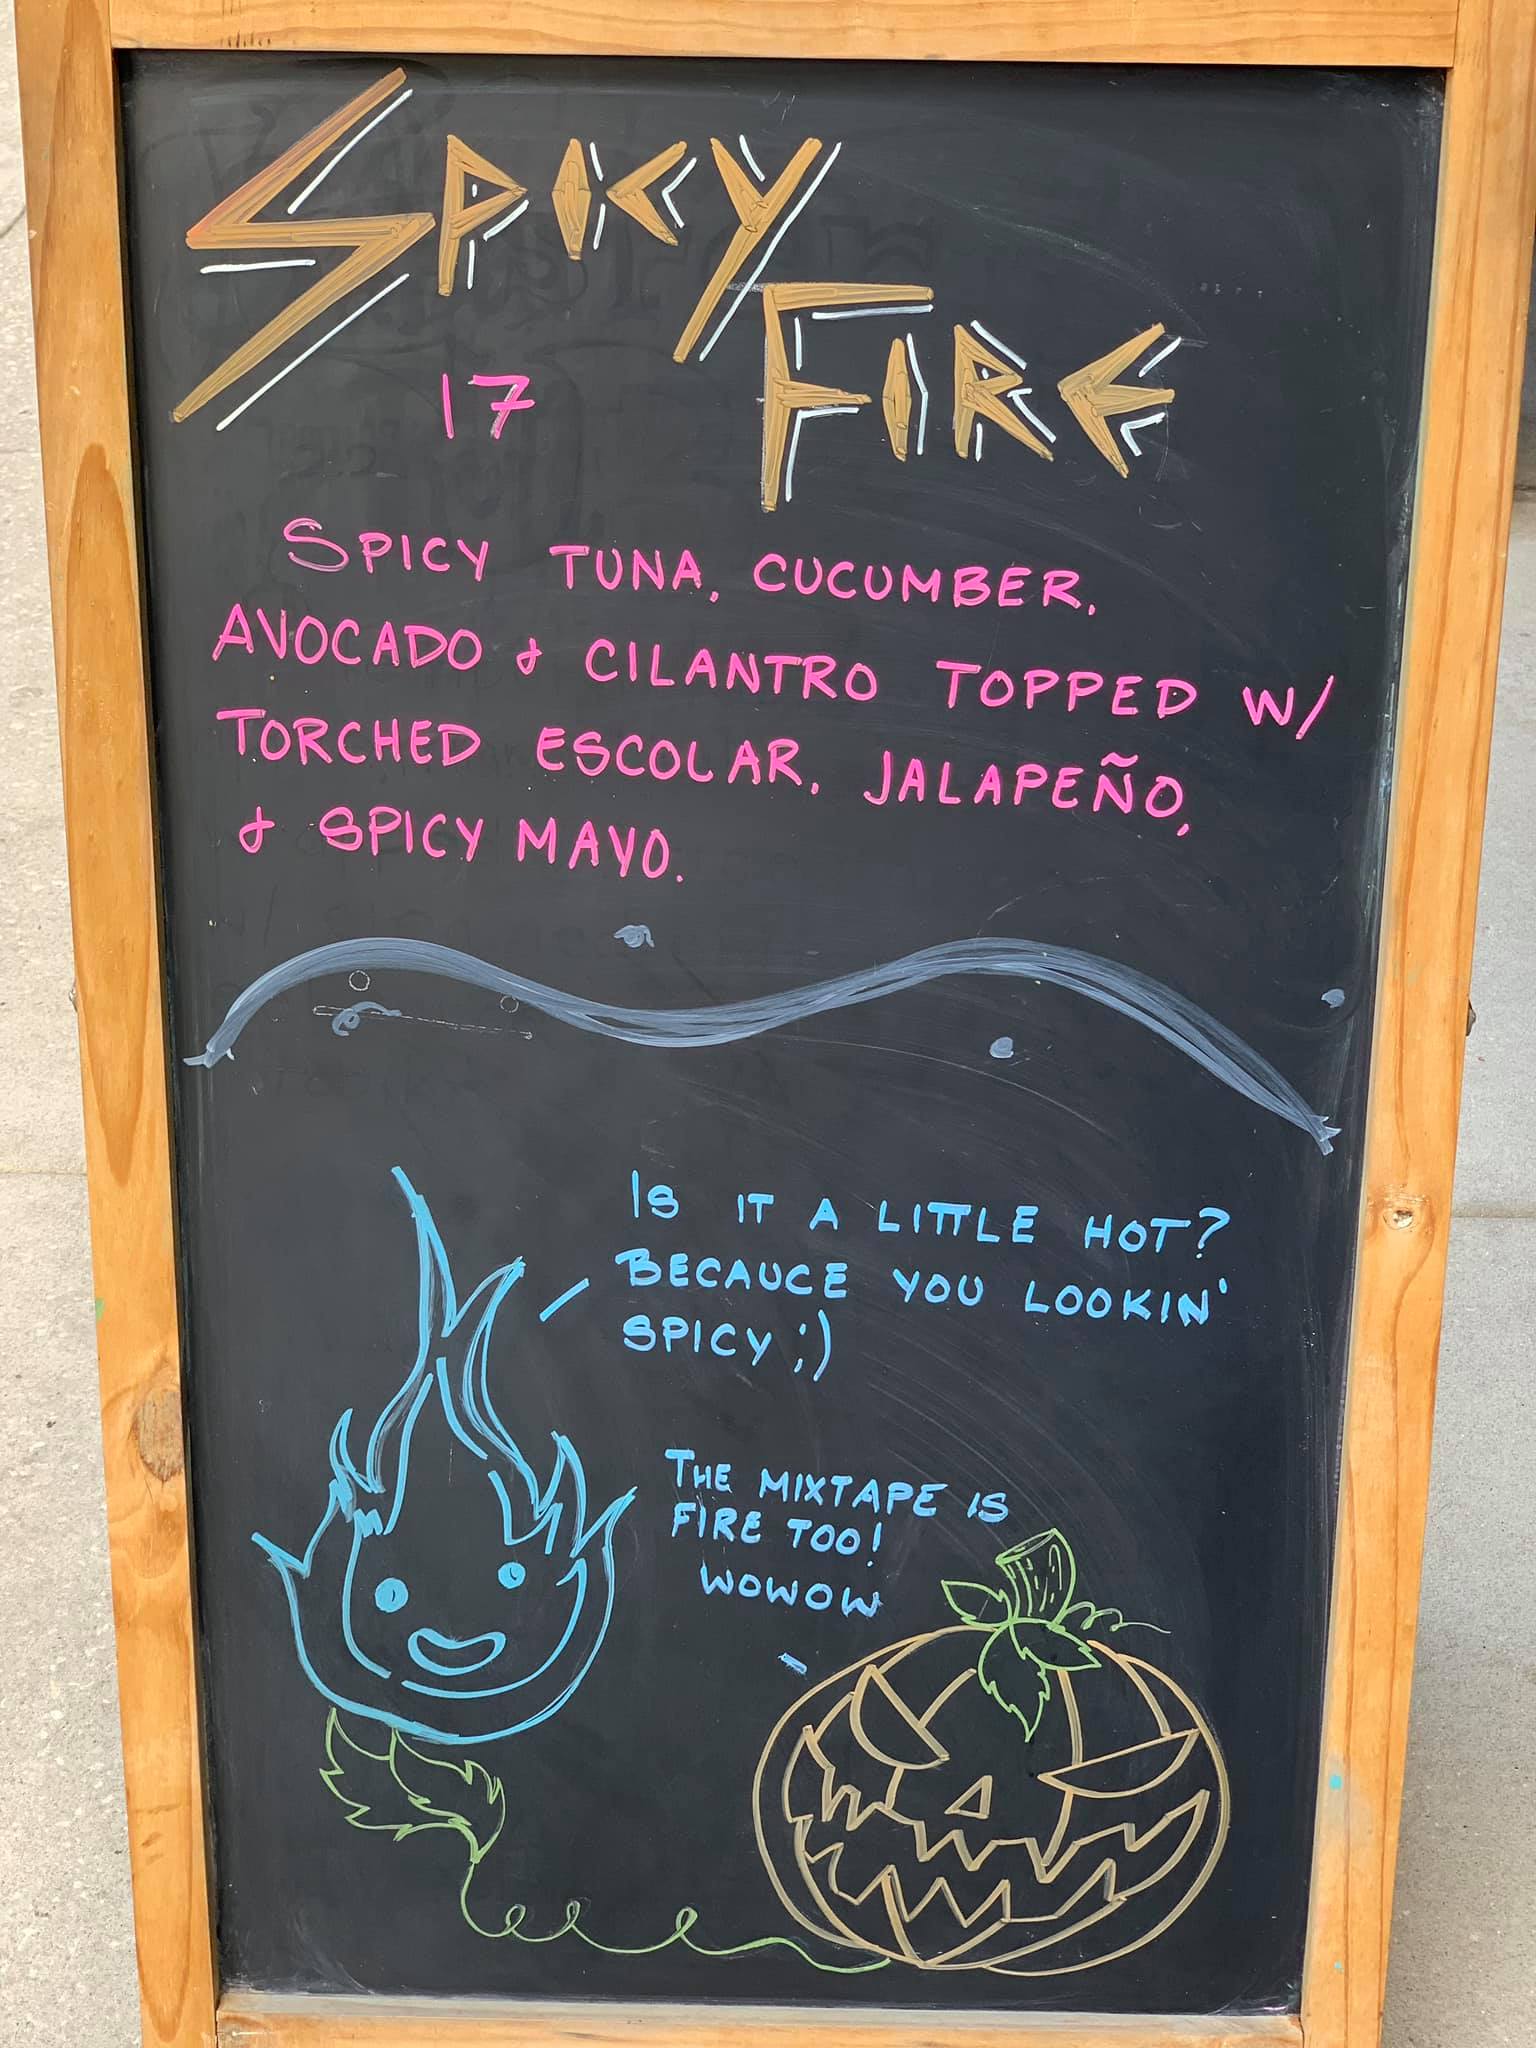 SPICY
FIRE
17
SPICY TUNA, CUCUMBER,
AVOCADO & CILANTRO TOPPED W/
TORCHED ESCOLAR, JALAPEÑO,
& SPICY MAYO.
IS IT A LITTLE HOT?
BECAUCE YOU LOOKIN'
SPICY ;)
THE MIXTAPE IS
FIRE TOO!
WOWOW